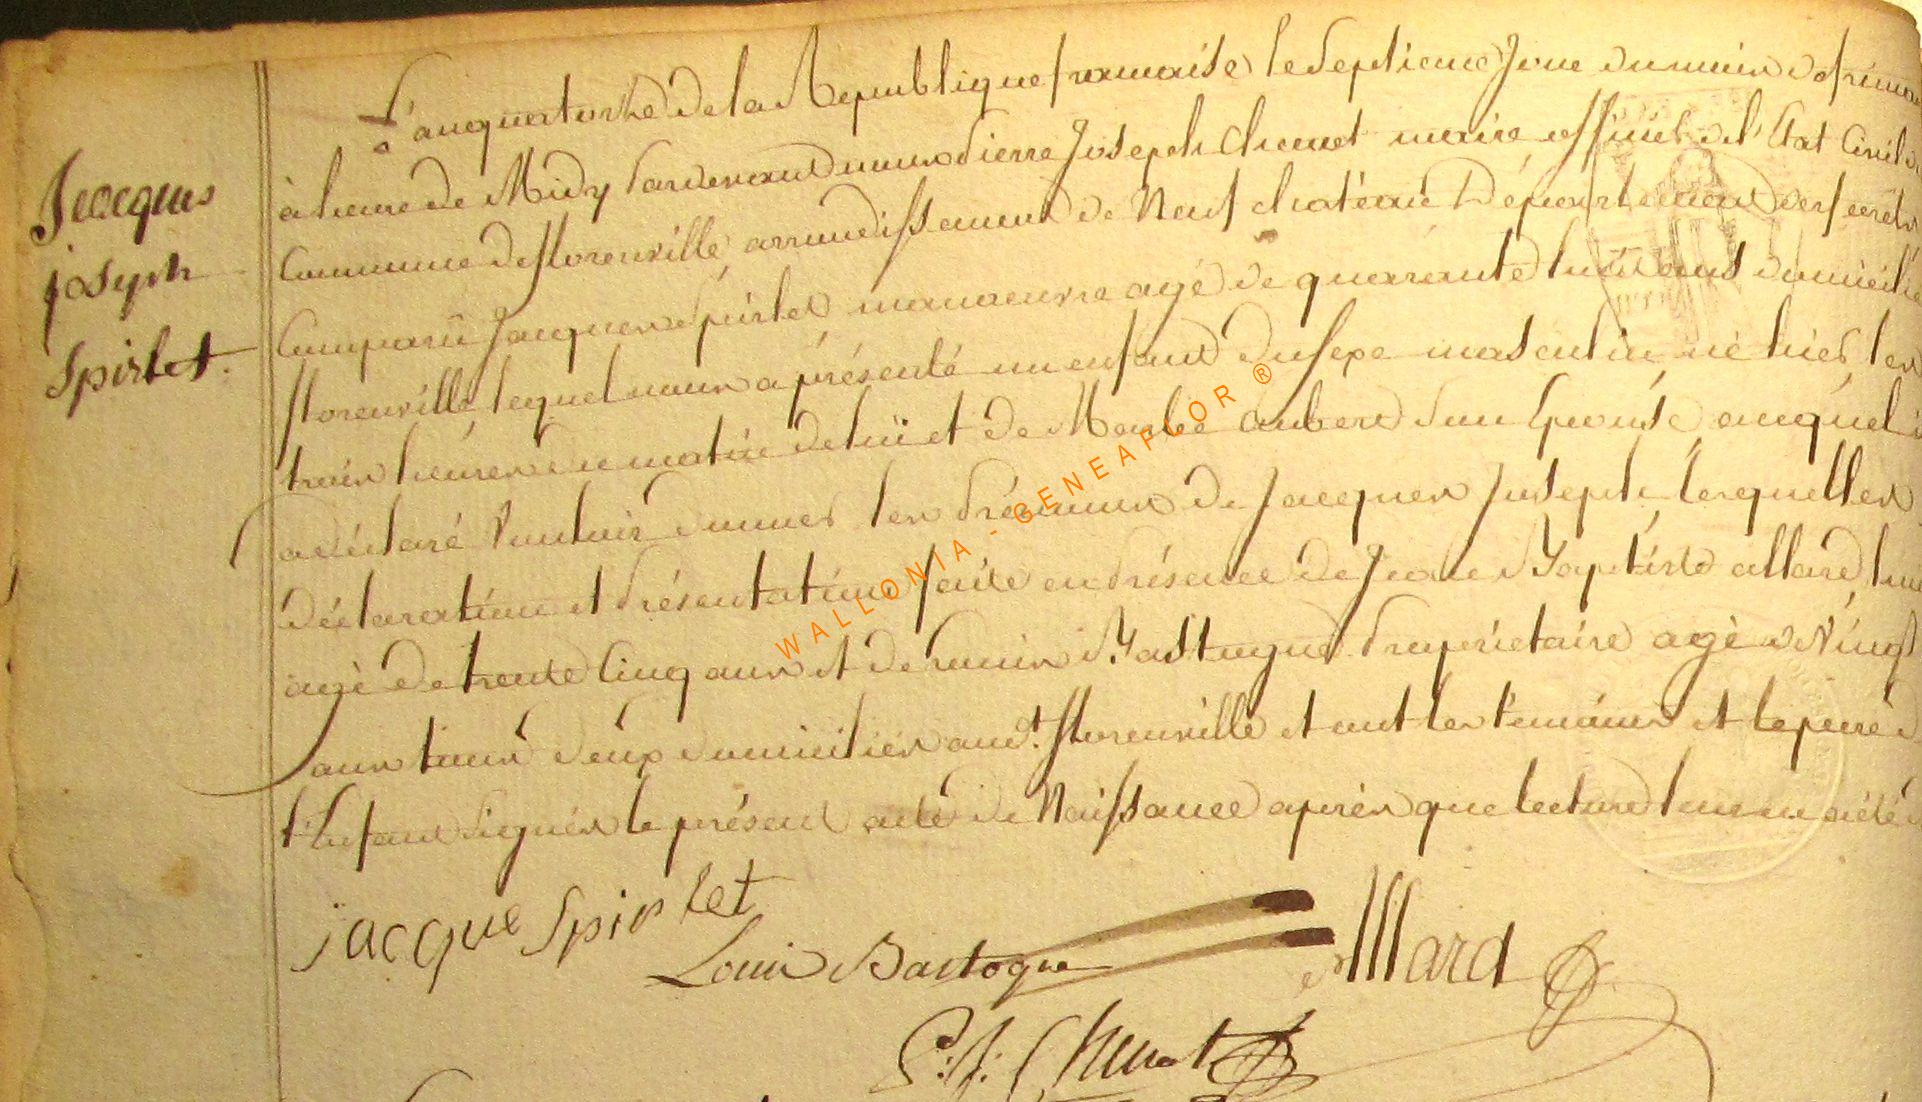 Jacques
joseph
Spirlet.
L'an quatorze de la Republique francaise le septieme Jour du mois de frima
à heure de Midy Pardevant nous Pierre Joseph Chenot maire officier de l'Etat Civil
Commune de florenville arrondissement de Neufchateau Département des forêts
Comparu Jacques Spirlet manoeuvre agé de quarante huit ans domicilié
florenville lequel nous a présenté un enfant du sexe masculin né hier
trois heures du matin de lui et de Aubert son Epouse auquel
a déclaré Vouloir donner les Prénoms de Jacques Joseph Lesquelles
déclaration et Présentation faite en Présence de Jean Baptiste allard
agé de trente Cinq ans et de Louis Bastogne Propriétaire agé de Vingt
ans tous deux domiciliés aud.t florenville et ont les temoins et le pere
l'Enfant signés le présent acte de Naissance après que lecture leur en a été
jacque Spirlet
Louis Bastogne
Allard
P: J: Chenot
WALLONIA - GENEAFLOR ®